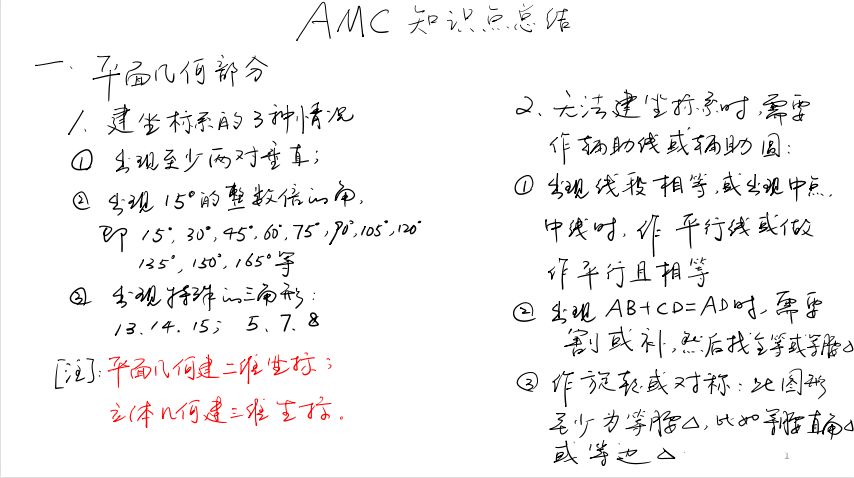 AMC 知识点总结
一、平面几何部分
1、建坐标系的3种情况
① 出现至少两对垂直;
② 出现15°的整数倍的角,
即 15°, 30°, 45°, 60°, 75°, 90°, 105°, 120°
135°, 150°, 165°等
③ 出现特殊的三角形:
13、14、15; 5、7、8
[注]: 平面几何建二维坐标;
立体几何建三维坐标.
2、无法建坐标系时,需要
作辅助线或辅助圆:
① 出现线段相等,或出现中点,
中线时,作平行线或做
作平行且相等
② 出现 AB+CD=AD时,需要
割或补,然后找全等或等腰△
③ 作旋转或对称:此图形
至少为等腰△,比如等腰直角△
或等边△
2